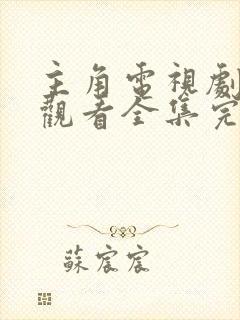 主角電視劇
觀看全集完
蘇宸宸